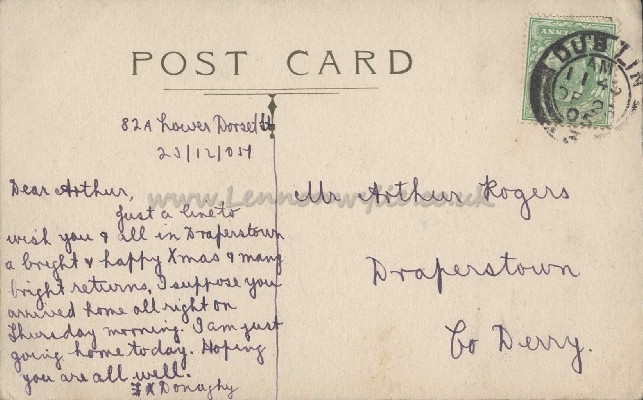 POST CARD
82A Lower Dorset St
23/12/05
Dear Arthur,
Just a line to
wish you & all in Draperstown
a bright & happy Xmas & many
bright returns. I suppose you
arrived home all right on
Thursday morning. I am just
going home today. Hoping
you are all well.
Donaghy
Mr Arthur Rogers
Draperstown
Co Derry.
DUBLIN
AM